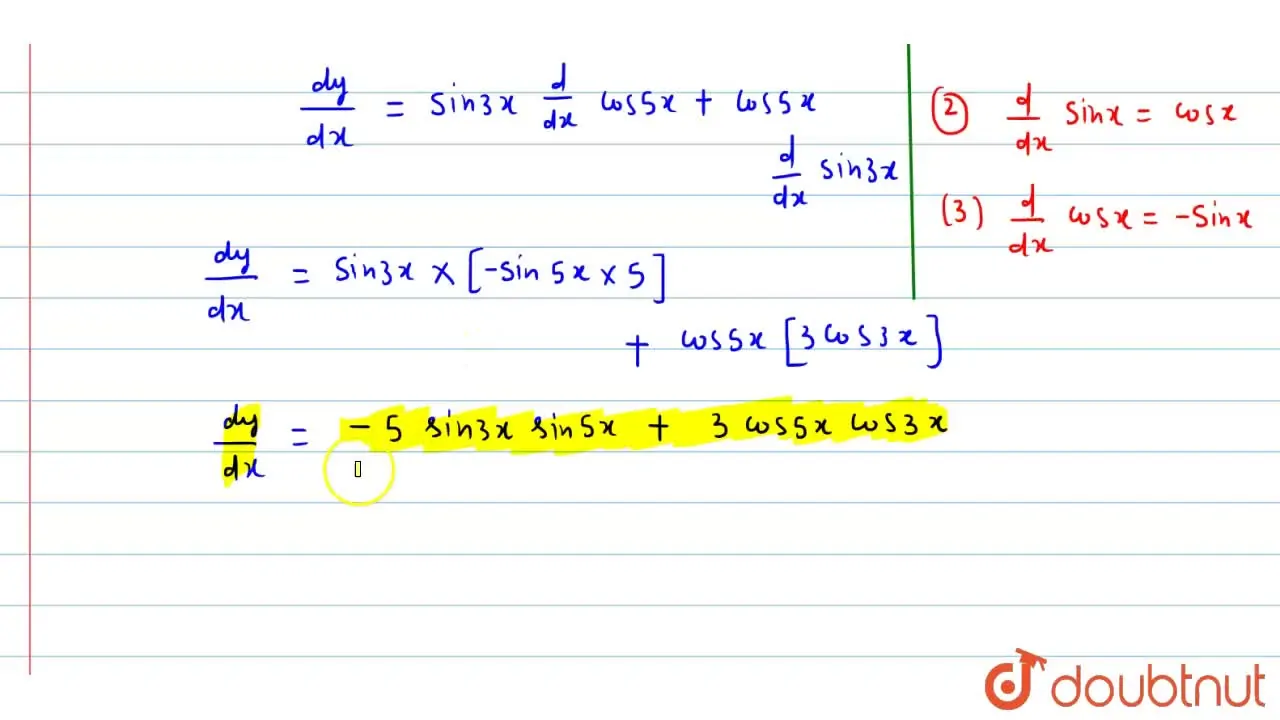 dy/dx = sin3x d/dx cos5x + cos5x
d/dx sin3x
dy/dx = sin3x × [-sin 5x × 5]
+ cos5x [3 cos3x]
dy/dx = - 5 sin3x sin5x + 3 cos5x cos3x
② d/dx sinx = cosx
(3) d/dx cosx = -sinx
doubtnut